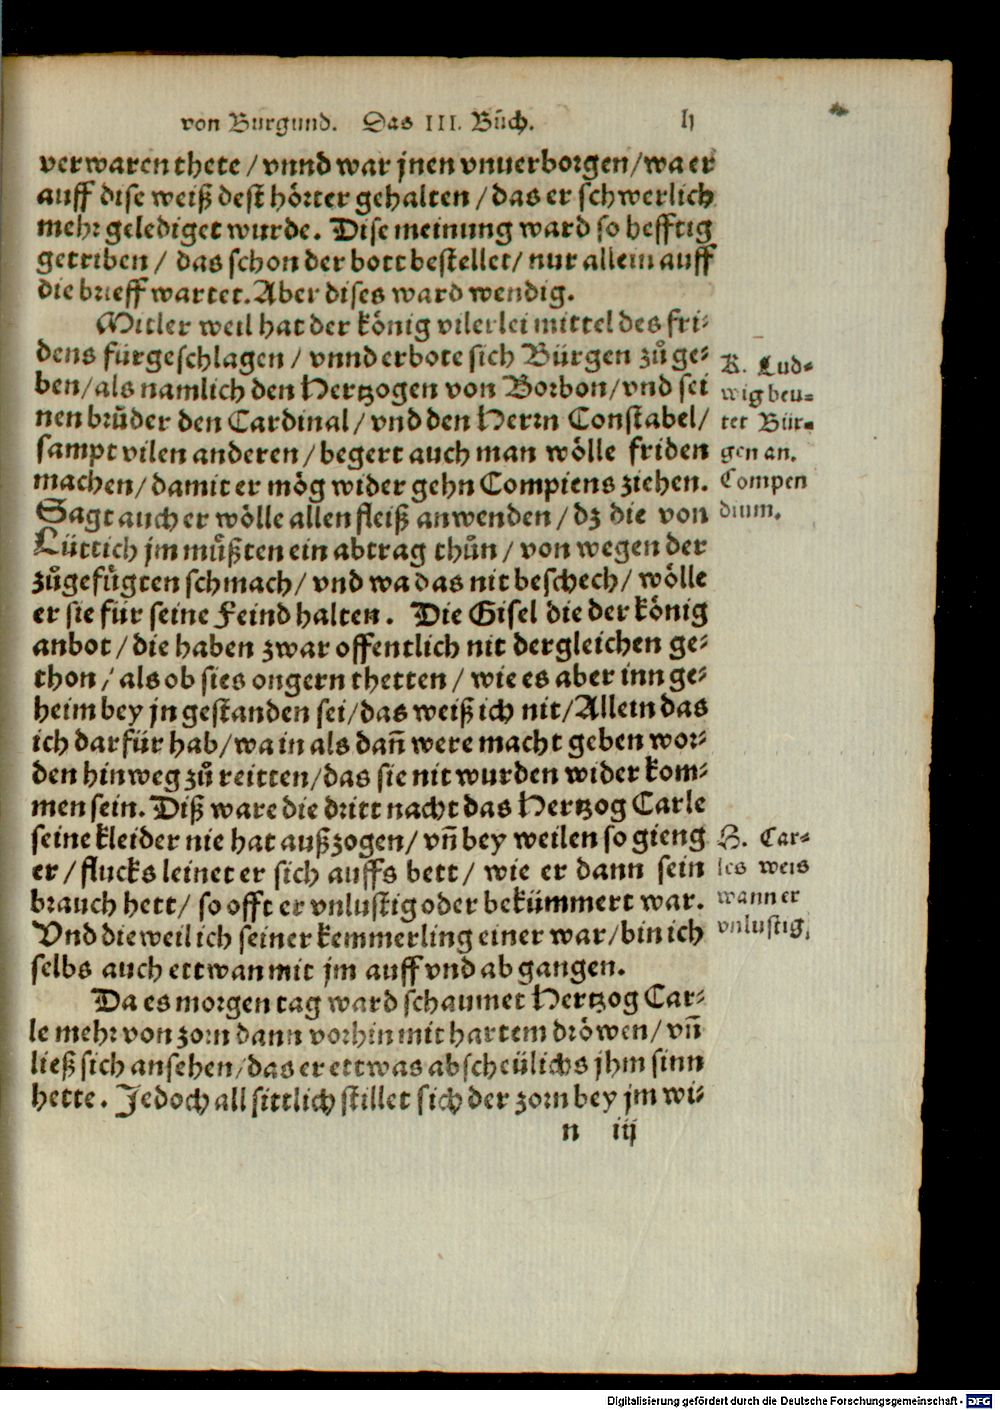 von Burgund. Das III. Bůch. lj
verwaren thete / vnnd war jnen vnuerborgen / wa er
auff dise weiß dest hörter gehalten / das er schwerlich
mehr gelediget wurde. Dise meinung ward so hefftig
getriben / das schon der bott bestellet / nur allein auff
die brieff wartet. Aber dises ward wendig.
Mitler weil hat der könig vilerlei mittel des fri⸗
dens fürgeschlagen / vnnd erbote sich Bürgen zů ge⸗
ben / als namlich den Hertzogen von Borbon / vnd sei
nen brůder den Cardinal / vnd den Herrn Constabel /
sampt vilen anderen / begert auch man wölle friden
machen / damit er mög wider gehn Compiens ziehen.
Sagt auch er wölle allen fleiß anwenden / dz die von
Lüttich jm můßten ein abtrag thůn / von wegen der
zůgefůgten schmach / vnd wa das nit beschech / wölle
er sie für seine Feind halten. Die Gisel die der könig
anbot / die haben zwar offentlich nit dergleichen ge⸗
thon / als ob sies ongern thetten / wie es aber inn ge⸗
heim bey jn gestanden sei / das weiß ich nit / Allein das
ich darfür hab / wa in als dañ were macht geben wor⸗
den hinweg zů reitten / das sie nit wurden wider kom⸗
men sein. Diß ware die dritt nacht das Hertzog Carle
seine kleider nie hat außzogen / vñ bey weilen so gieng
er / flucks leinet er sich auffs bett / wie er dann sein
brauch hett / so offt er vnlustig oder bekümmert war.
Vnd dieweil ich seiner kemmerling einer war / bin ich
selbs auch ettwan mit jm auff vnd ab gangen.
Da es morgen tag ward schaumet Hertzog Car⸗
le mehr von zorn dann vorhin mit hartem dröwen / vñ
ließ sich ansehen / das er ettwas abscheülichs jhm sinn
hette. Jedoch all sittlich stillet sich der zorn bey jm wi⸗
n iij
K. Lud⸗
wig beu⸗
tet Bür⸗
gen an.
Compen
dium.
H. Car⸗
les weis
wann er
vnlustig.
Digitalisierung gefördert durch die Deutsche Forschungsgemeinschaft - DFG